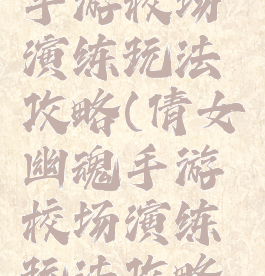 手游校场
演练玩法
攻略(倩女
幽魂手游
校场演练
玩法攻略